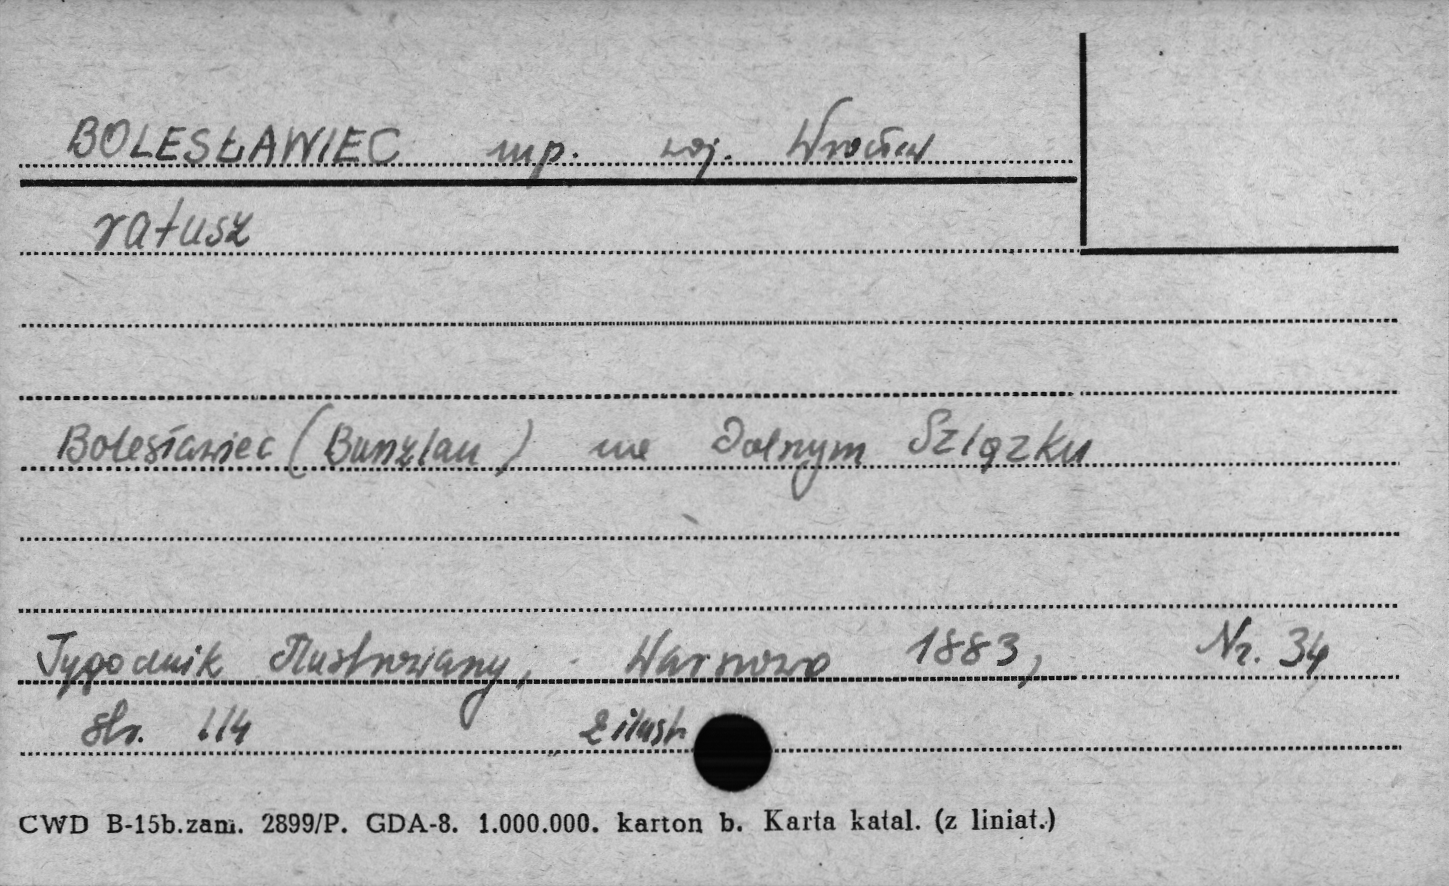 BOLESŁAWIEC mp. woj. Wrocław
ratusz
Bolesławiec (Bunzlau) na Dolnym Szlązku
Tygodnik Illustrowany, Warszawa 1883, Nr. 34
str. 114 z ilustr.
CWD B-15b.zam. 2899/P. GDA-8. 1.000.000. karton b. Karta katal. (z liniat.)